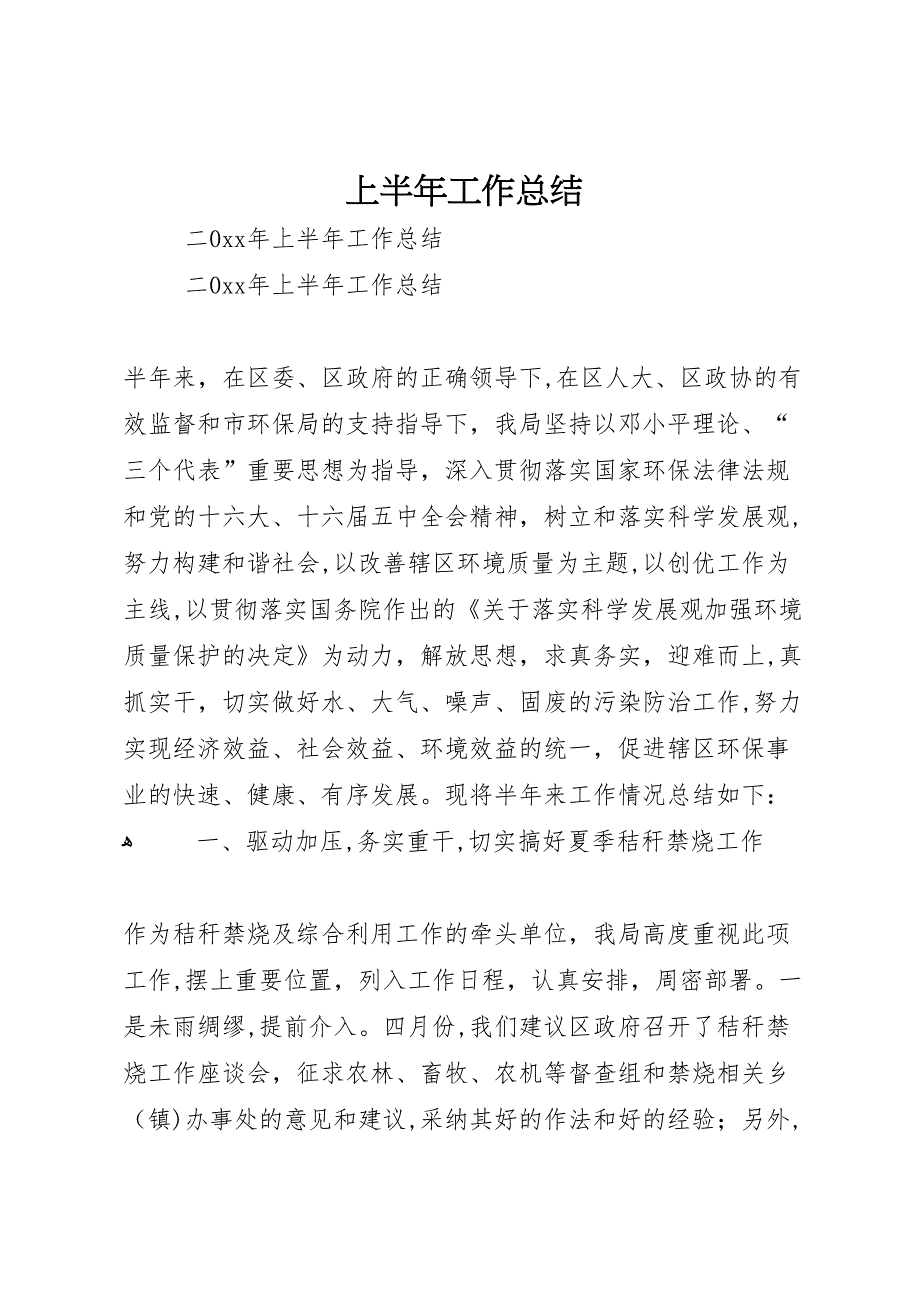 上半年工作总结
二0xx年上半年工作总结
二0xx年上半年工作总结
半年来，在区委、区政府的正确领导下,在区人大、区政协的有
效监督和市环保局的支持指导下，我局坚持以邓小平理论、“
三个代表”重要思想为指导，深入贯彻落实国家环保法律法规
和党的十六大、十六届五中全会精神，树立和落实科学发展观,
努力构建和谐社会,以改善辖区环境质量为主题,以创优工作为
主线,以贯彻落实国务院作出的《关于落实科学发展观加强环境
质量保护的决定》为动力，解放思想，求真务实，迎难而上,真
抓实干，切实做好水、大气、噪声、固废的污染防治工作,努力
实现经济效益、社会效益、环境效益的统一，促进辖区环保事
业的快速、健康、有序发展。现将半年来工作情况总结如下：
ﻫ 一、驱动加压,务实重干,切实搞好夏季秸秆禁烧工作
作为秸秆禁烧及综合利用工作的牵头单位，我局高度重视此项
工作,摆上重要位置，列入工作日程，认真安排，周密部署。一
是未雨绸缪,提前介入。四月份,我们建议区政府召开了秸秆禁
烧工作座谈会，征求农林、畜牧、农机等督查组和禁烧相关乡
（镇)办事处的意见和建议,采纳其好的作法和好的经验；另外,